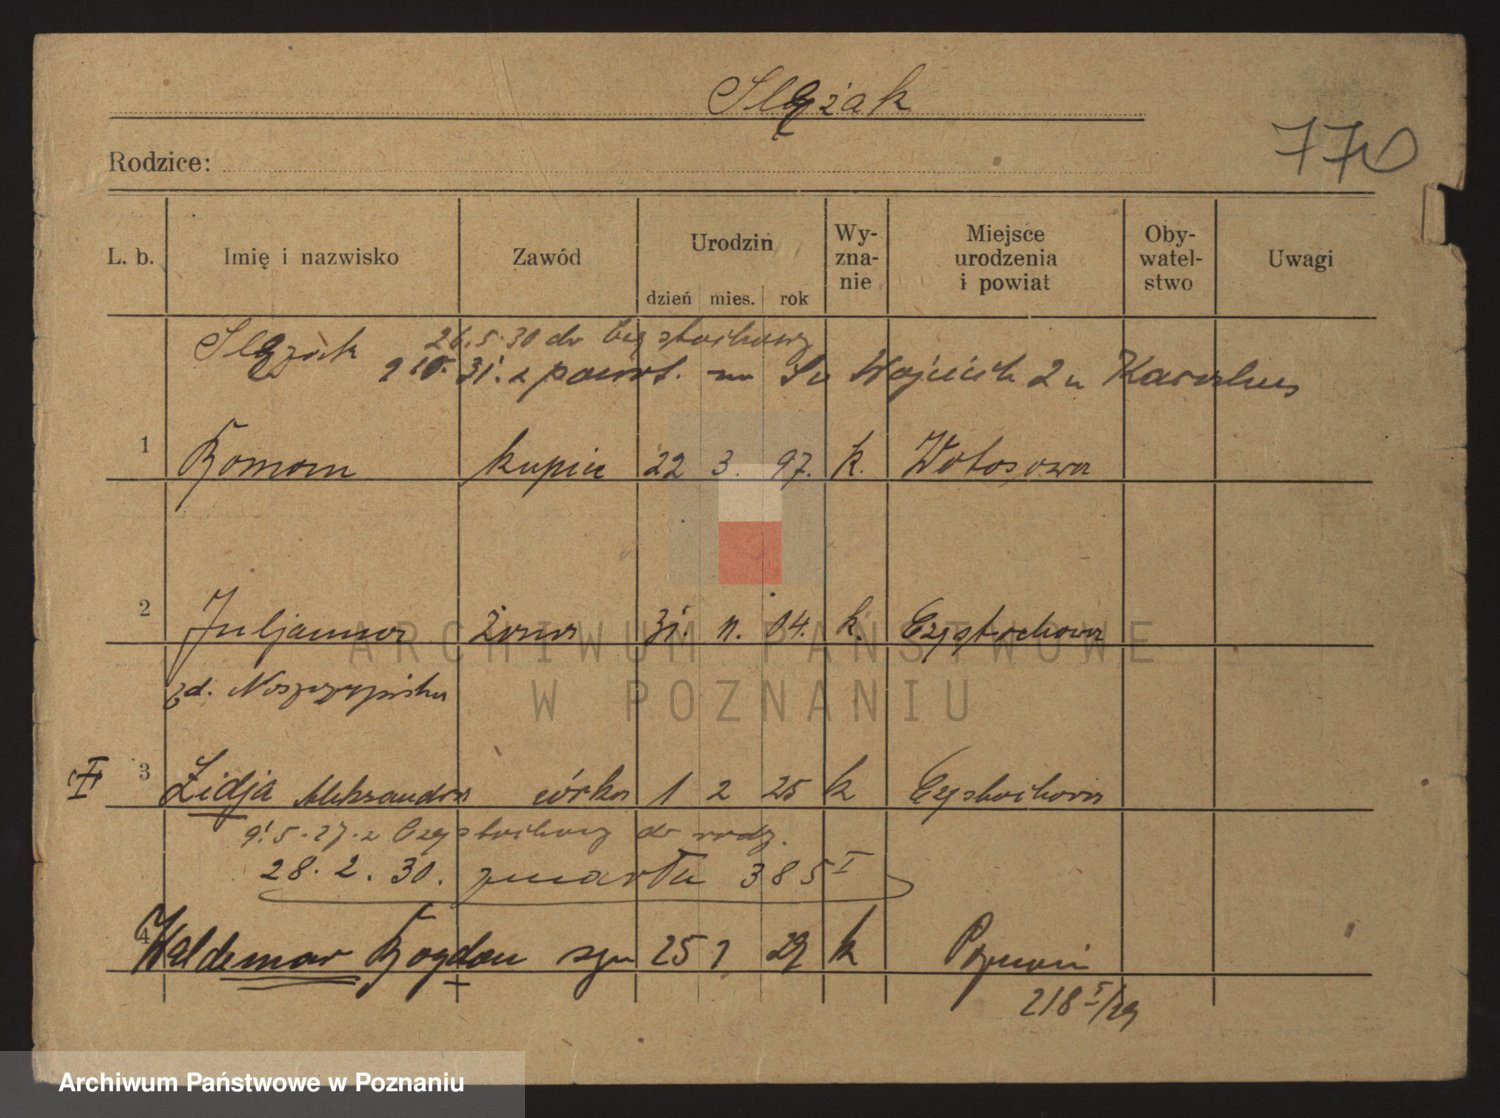 Slężak
770
Rodzice:
L. b. Imię i nazwisko Zawód Urodzin dzień mies. rok Wy-zna-nie Miejsce urodzenia i powiat Oby-watel-stwo Uwagi
Slęzak 26.5.30 do Częstochowy
31. z powrt. na Św Wojciech 2 u
1 Roman kupiec 22 3. 97. k. Wotosowa
2 Juljanna żona 31. 04. k. Częstochowa
zd.
ARCHIWUM PAŃSTWOWE
W POZNANIU
I 3 Lidja Aleksandra córka 1 2 25 k Częstochowa
9.5.27. z Częstochowy do rodz.
28.2.30. zmarła 385 I
4 Waldemar Bogdan syn 25 29 k Poznań
218 I/29
Archiwum Państwowe w Poznaniu